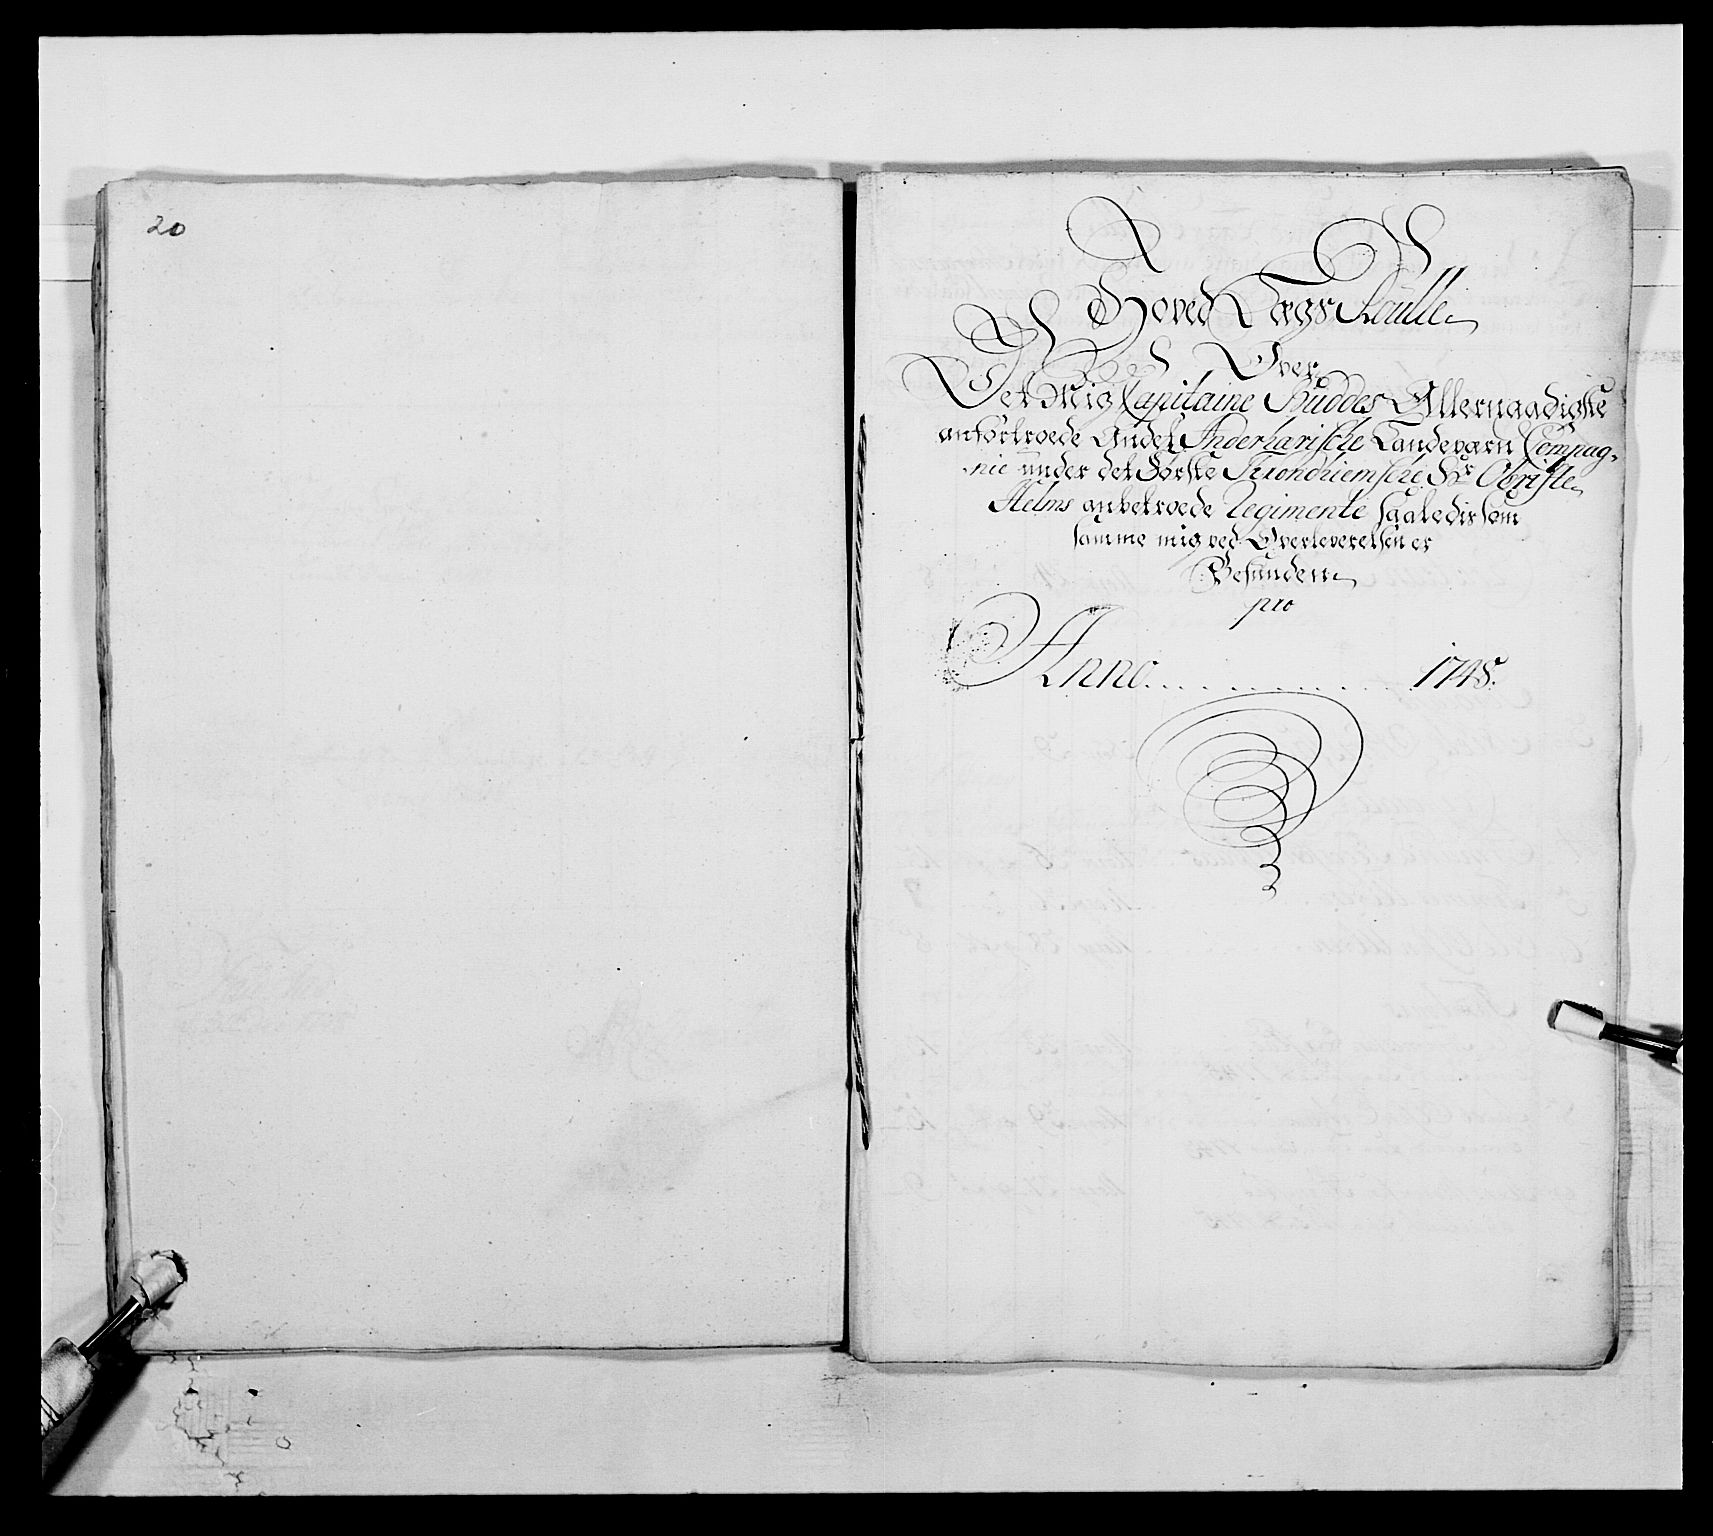 20
Hoved Lægs Roulle
Over
Det Mig Capitaine Buddes Allernaadigste
anfortroede Andel Inderharische Landevarn Compag-
nie under det Første Trondhiemsche Hr Obriste
Helms anbetroede Regimente saaledis som
samme mig ved Overleverelsen er
Befunden
pro
Anno . . . . . . . . . . 1748.